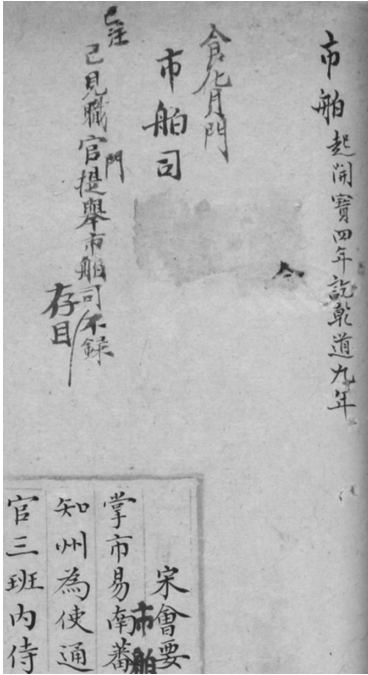 市舶起開寶四年訖乾道九年
食貨門
市舶司
已注
已見職官門提舉市舶司不錄
存目
宋會要
市舶
掌市易南蕃
知州為使通
官三班內侍